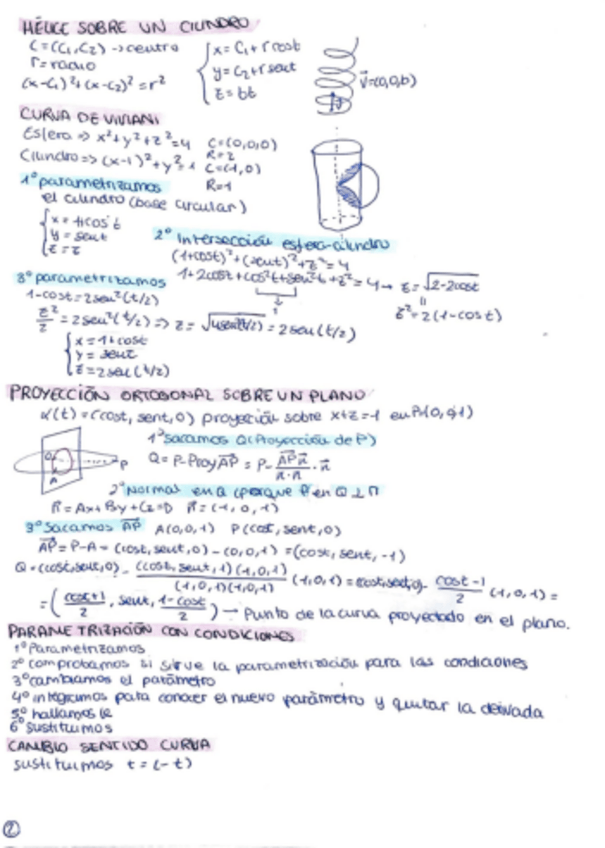 HÉLICE SOBRE UN CILINDRO
C=(C₁,C₂) → centro
r=radio
(x-C₁)²+(x-C₂)²=r²
{x=C₁+r cost
y=C₂+r sent
z=bt
v⃗=(0,0,b)
CURVA DE VIVIANI
Esfera => x²+y²+z²=4 C=(0,0,0)
R=2
Cilindro => (x-1)²+y²=1 C=(1,0)
R=1
1º parametrizamos
el cilindro (base circular)
{x=1+cos t
y=sent
z=z
2º Intersección esfera-cilindro
(1+cost)²+(sent)²+z²=4
1+2cost+cos²t+sen²t+z²=4 → z=√2-2cost
1
z²=2(1-cost)
3º parametrizamos
1-cost=2sen²(t/2)
z²/2=2sen²(t/2) => z=√4sen²(t/2)=2sen(t/2)
{x=1+cost
y=sent
z=2sen(t/2)
PROYECCIÓN ORTOGONAL SOBRE UN PLANO
α(t)=(cost, sent, 0) proyección sobre
1º sacamos Q (Proyección de P)
Q=P-Proy AP⃗ = P- AP⃗·n⃗/n·n · n⃗
2º Normal en Q (porque P en Q ⊥ Π
n⃗=Ax+By+Cz=D n⃗=(-1,0,1)
3º Sacamos AP⃗ A(0,0,1) P(cost, sent, 0)
AP⃗=P-A=(cost, sent, 0)-(0,0,1)=(cost, sent, -1)
Q=(cost, sent, 0)- ((cost, sent, 1)(-1,0,1))/((1,0,1)(1,0,1)) (-1,0,1)=(cost, sent, 0)- (cost-1)/2 (-1,0,1)=
=((cost+1)/2, sent, (1-cost)/2) → Punto de la curva proyectado en el plano.
PARAMETRIZACIÓN CON CONDICIONES
1º Parametrizamos
2º comprobamos si sirve la parametrización para las condiciones
3º cambiamos el parámetro
4º integramos para conocer el nuevo parámetro y quitar la derivada
5º hallamos k
6º sustituimos
CAMBIO SENTIDO CURVA
sustituimos t=(-t)
②